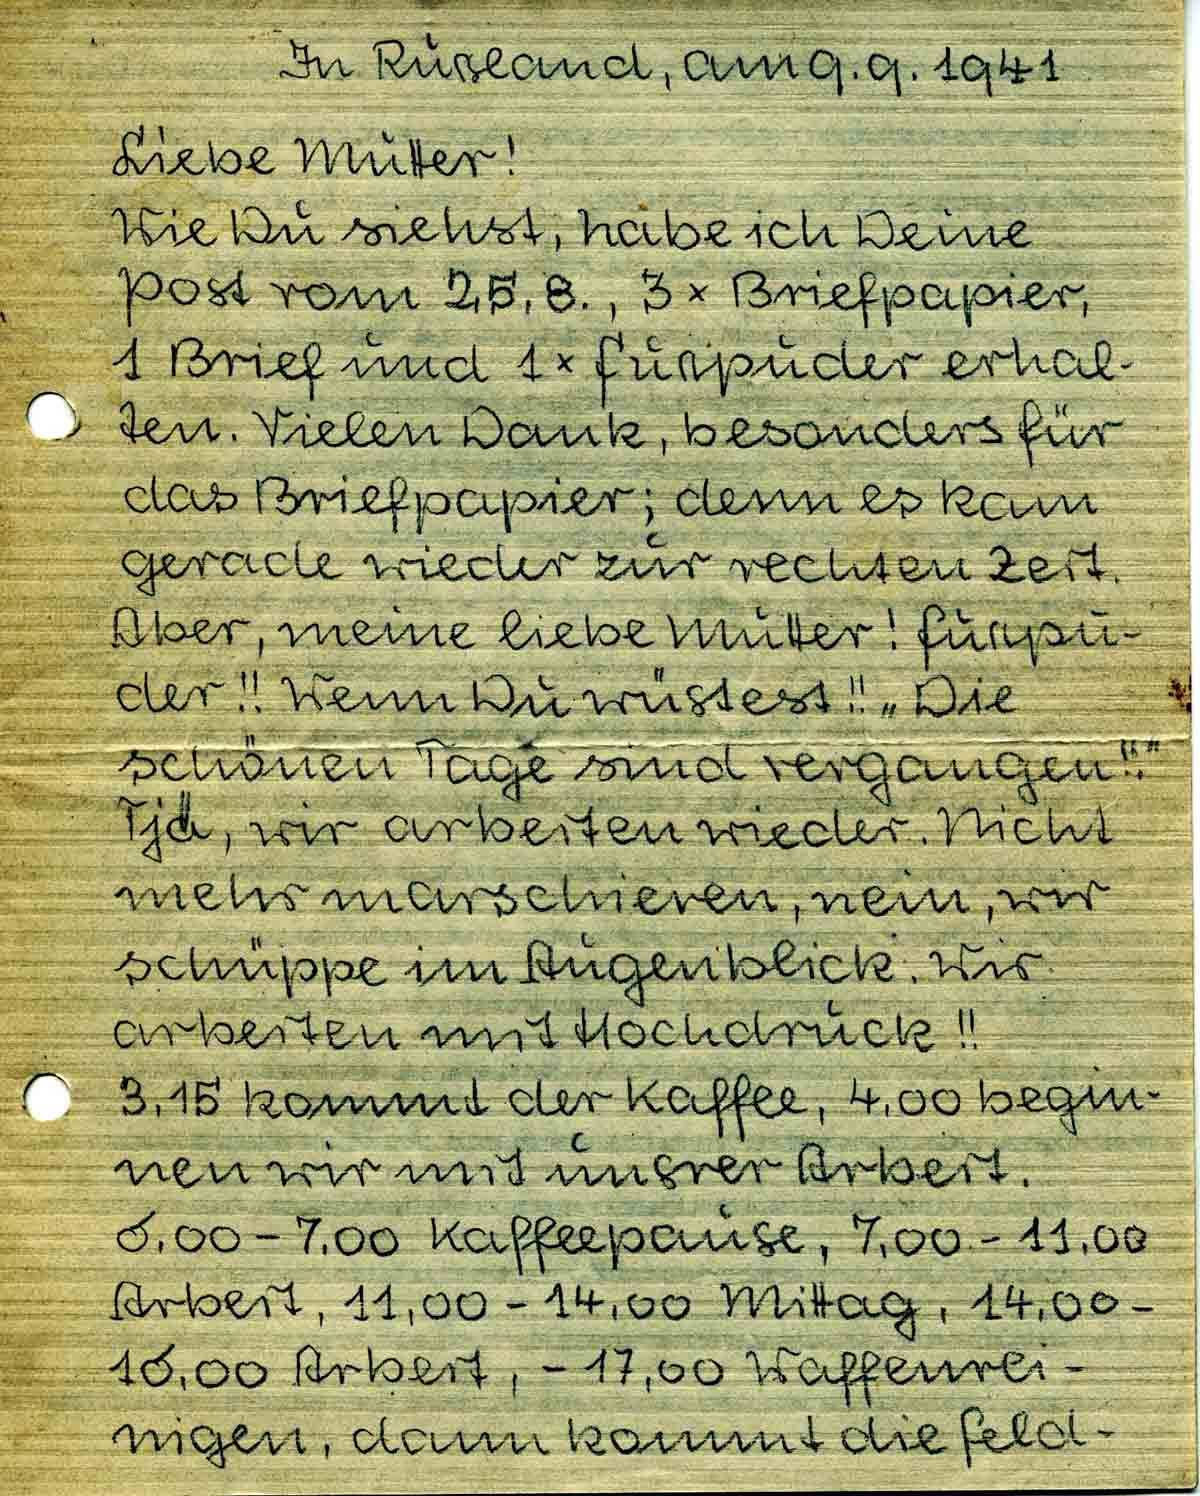 In Rußland, am 9.9.1941
Liebe Mutter!
Wie Du siehst, habe ich Deine
Post vom 25.8., 3 x Briefpapier,
1 Brief und 1 x Fußpuder erhal-
ten. Vielen Dank, besonders für
das Briefpapier; denn es kam
gerade wieder zur rechten Zeit.
Aber, meine liebe Mutter! Fußpu-
der!! Wenn Du wüßtest!! „Die
schönen Tage sind vergangen!!"
Tja, wir arbeiten wieder. Nicht
mehr marschieren, nein, wir
schüppe im Augenblick. Wir
arbeiten mit Hochdruck!!
3,15 kommt der Kaffee, 4,00 begin-
nen wir mit unsrer Arbeit.
6,00 – 7,00 Kaffeepause, 7,00 – 11,00
Arbeit, 11,00 – 14,00 Mittag, 14,00 –
16,00 Arbeit, – 17,00 Waffenrei-
nigen, dann kommt die Feld-